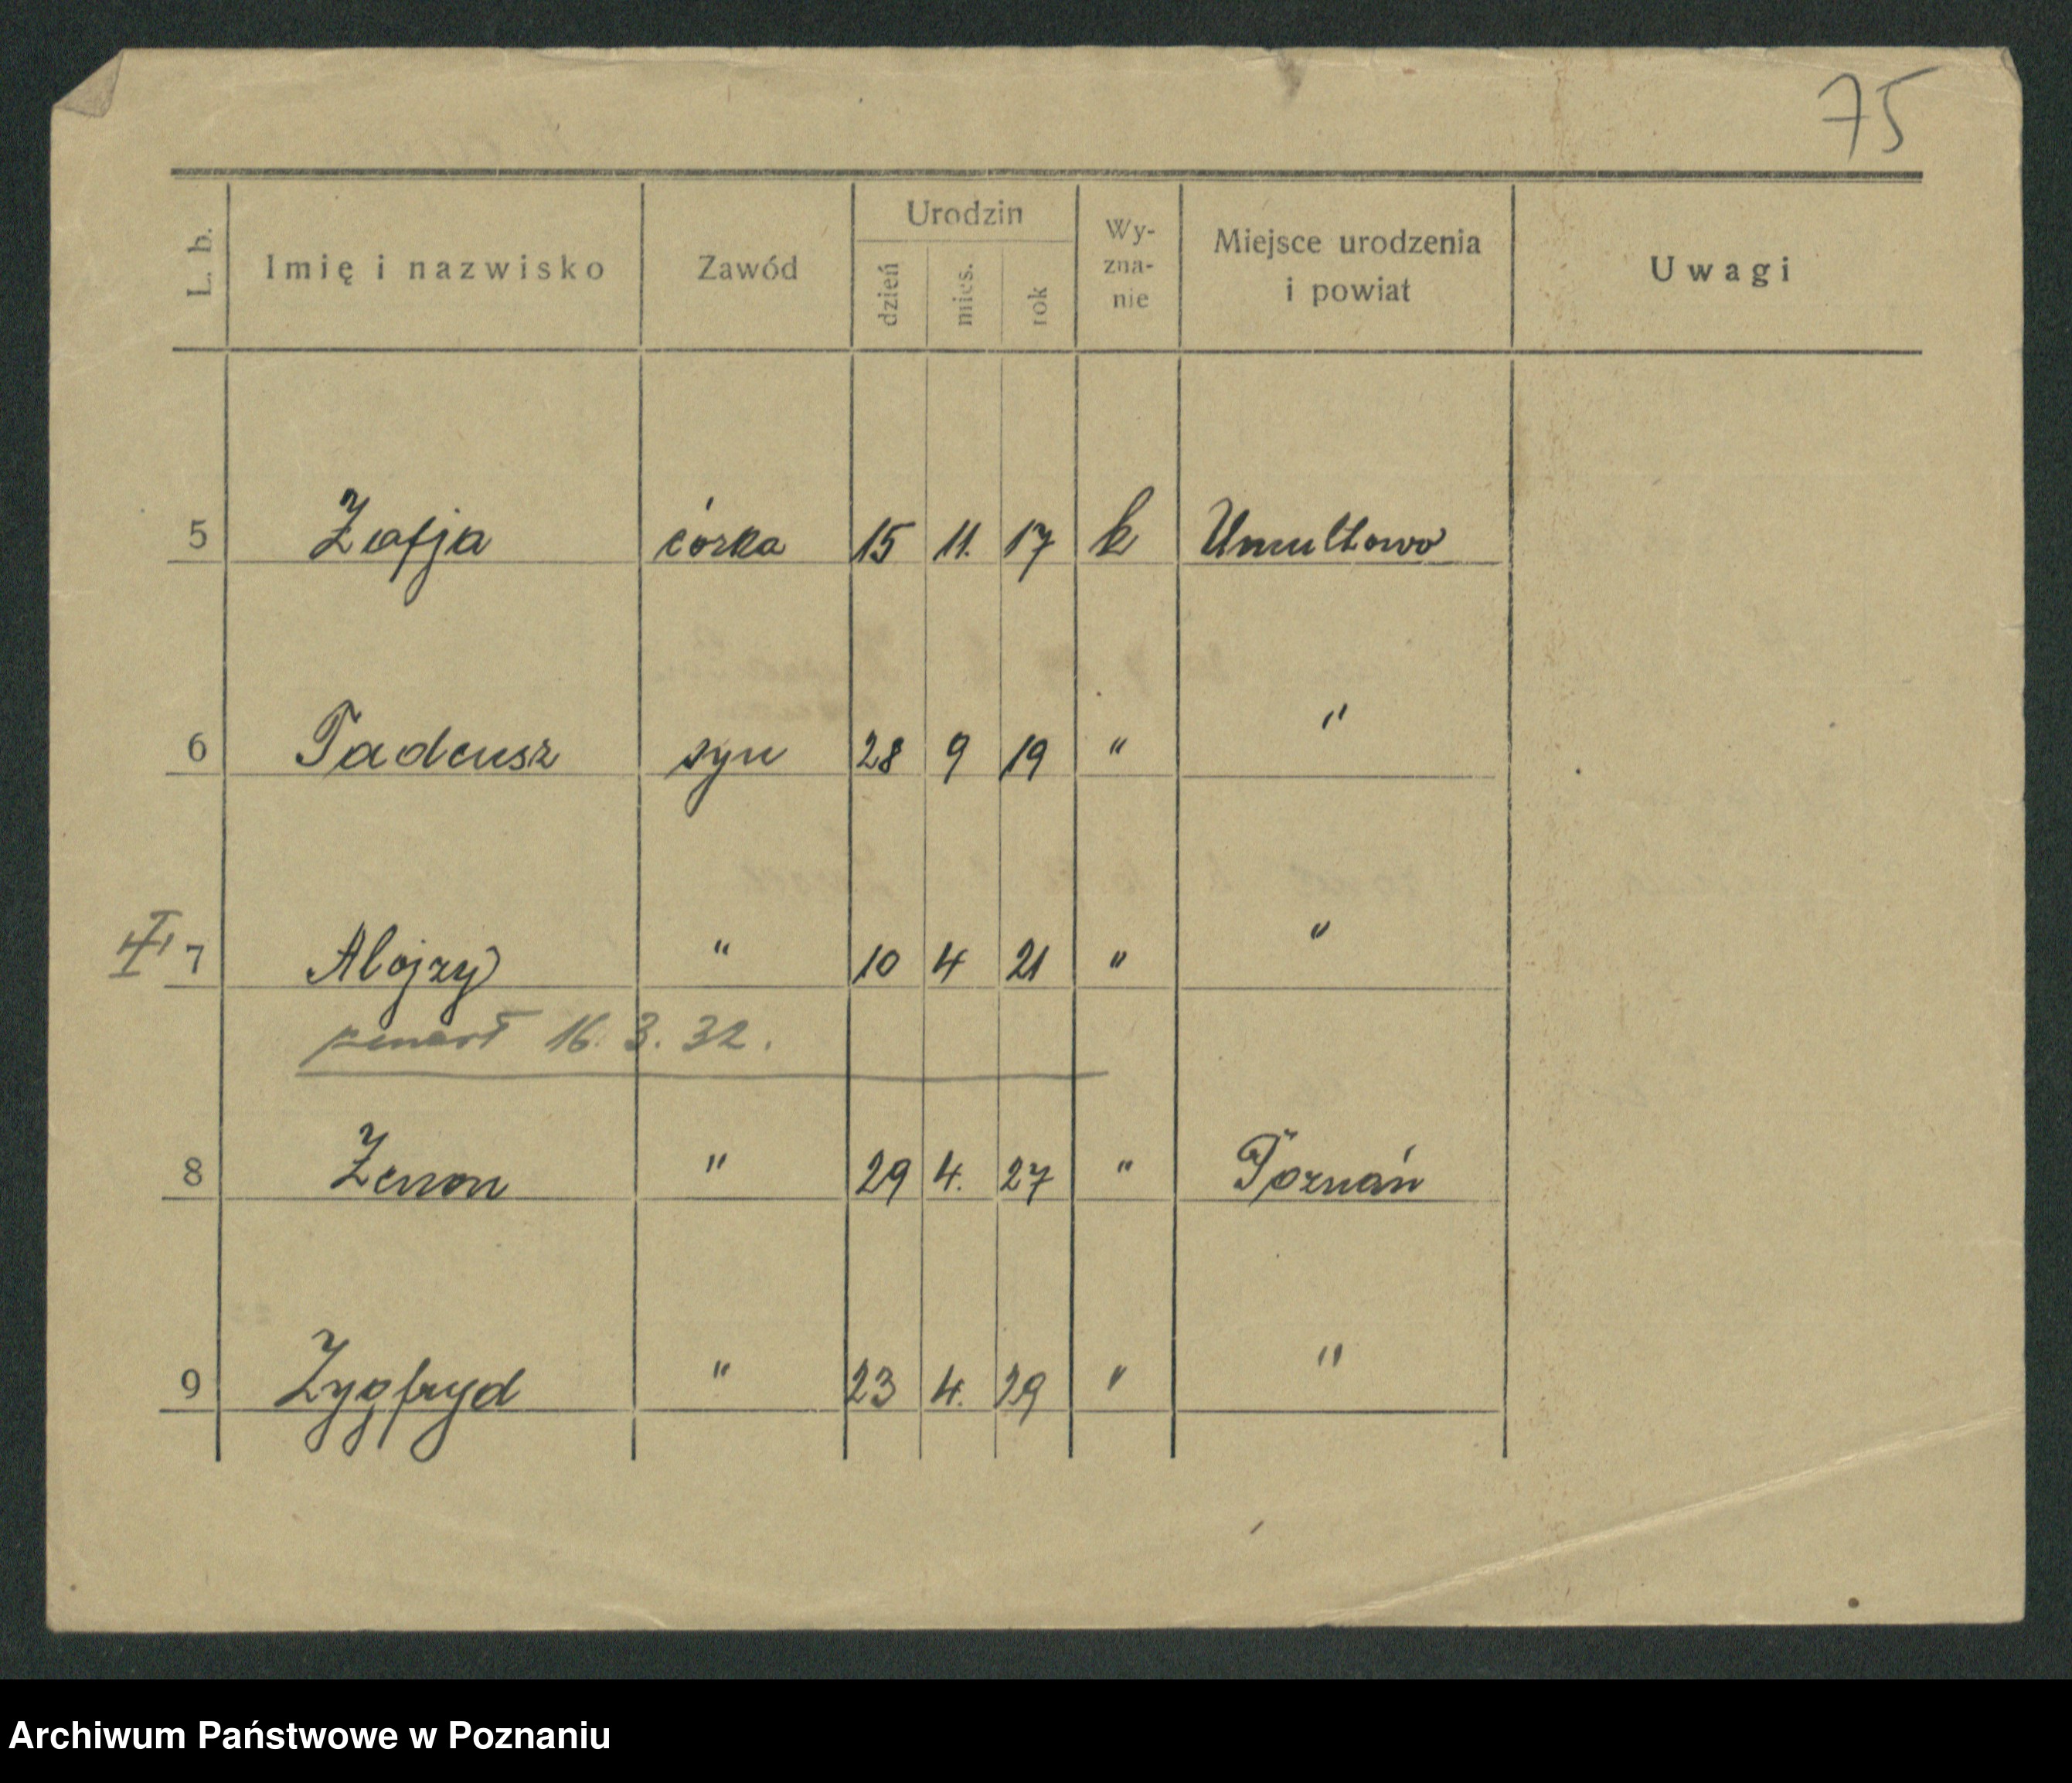 75
L. b. Imię i nazwisko Zawód Urodzin dzień mies. rok Wy-zna-nie Miejsce urodzenia i powiat Uwagi
5 Zofja córka 15 11. 17 k Umultowo
6 Tadeusz syn 28 9 19 " "
7 Alojzy " 10 4 21 " "
zmarł 16. 3. 32.
8 Zenon " 29 4. 27 " Poznań
9 Zygfryd " 23 4. 29 " "
Archiwum Państwowe w Poznaniu